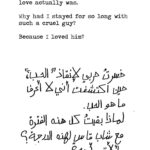 love actually was.
Why had I stayed for so long with
such a cruel guy?
Because I loved him?
خسرت حربي لإنقاذ "الحب"
حين اكتشفت أنني لا أعرف
ما هو الحب.
لماذا بقيت كل هذه الفترة
مع شاب قاس لهذه الدرجة؟